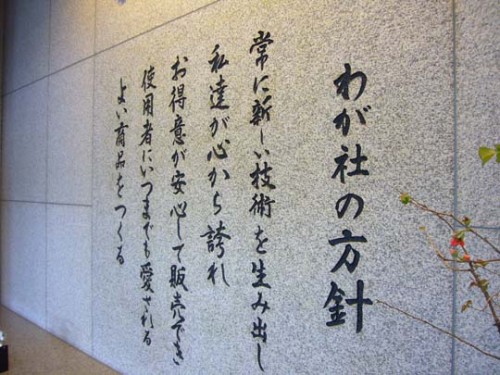 わが社の方針
常に新しい技術を生み出し
私達が心から誇れ
お得意が安心して販売でき
使用者にいつまでも愛される
よい商品をつくる